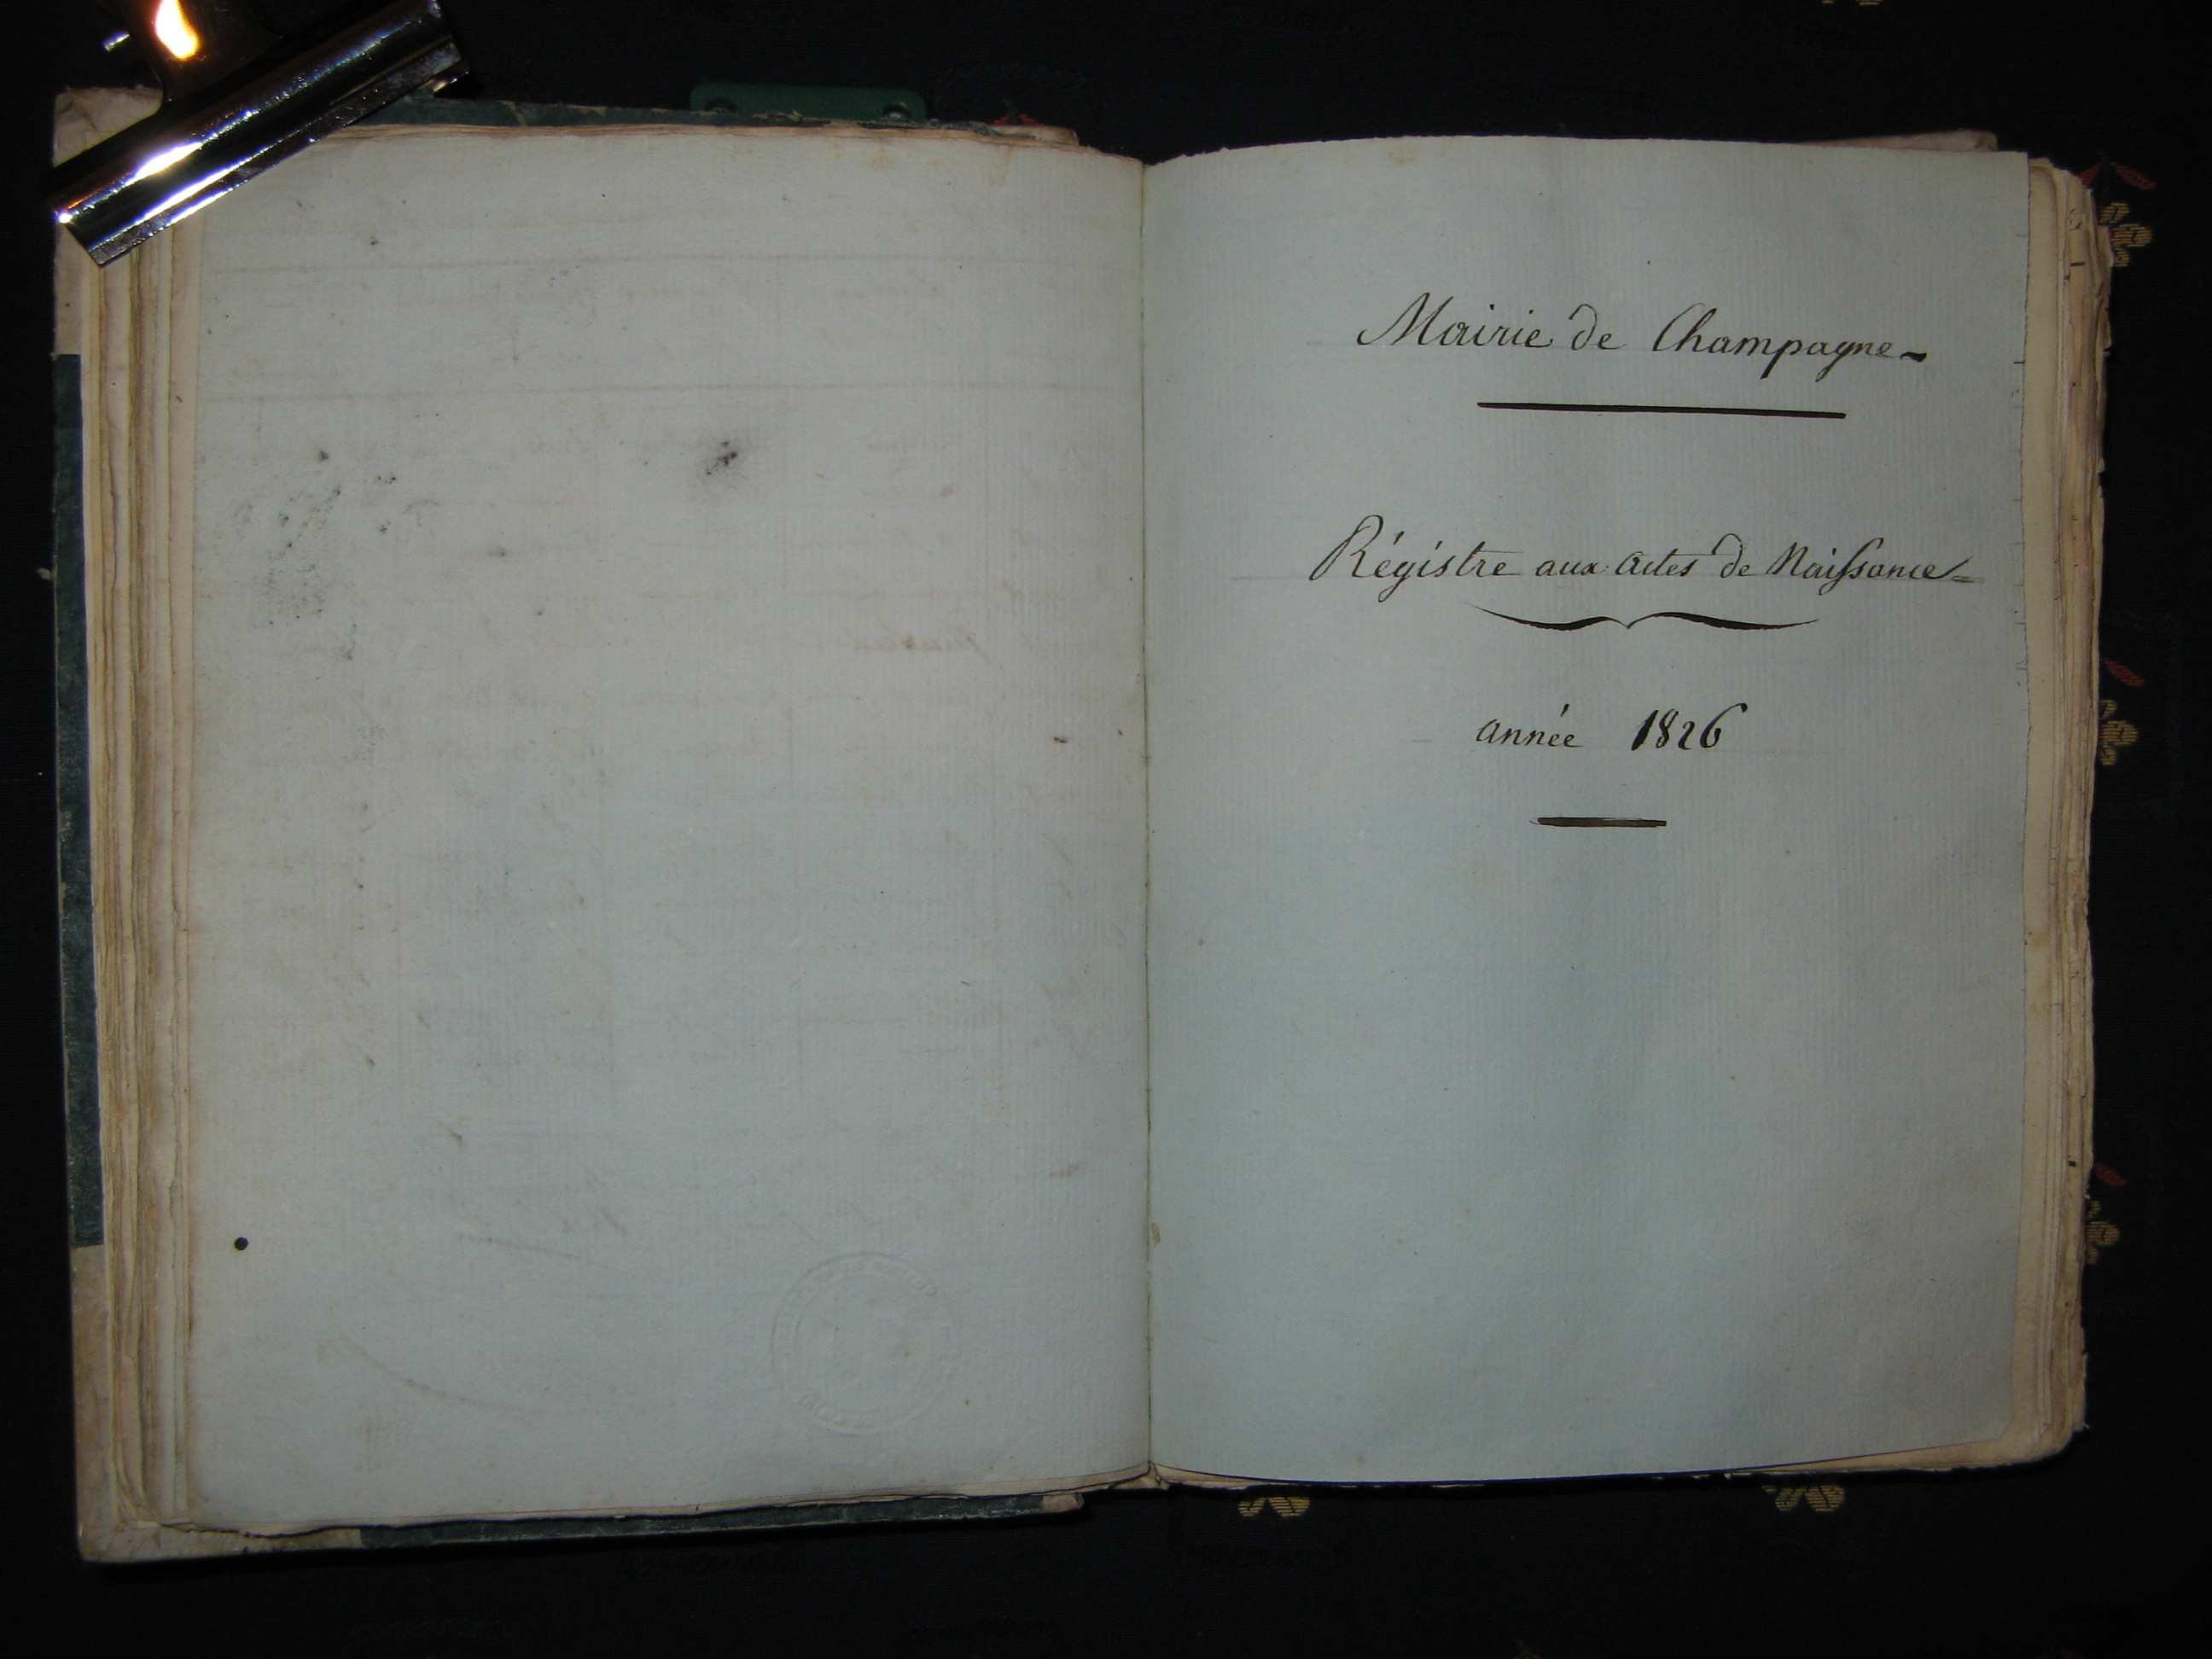 Mairie de Champagne
Régistre aux actes de Naissance
année 1826